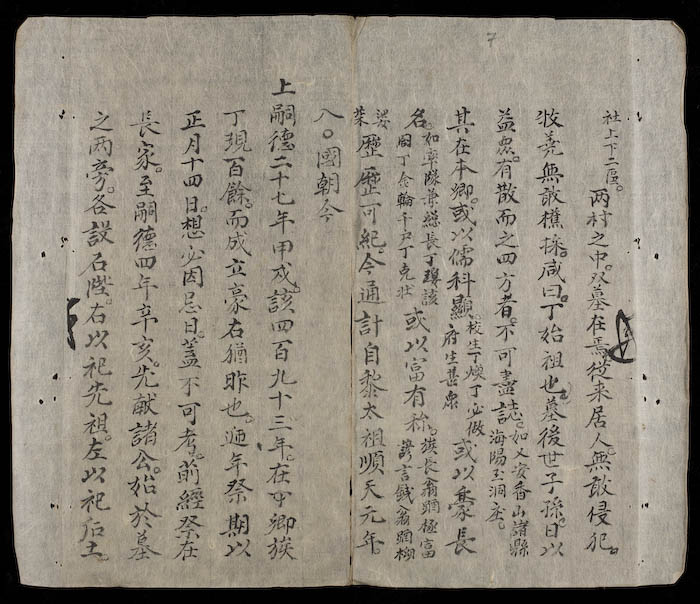 7
社上下二區。两村之中。双墓在焉。從来居人。無敢侵犯。
牧蕘無敢樵採。咸曰。丁始祖也。墓後世子孫。日以
益衆。有散而之四方者。不可盡誌。如乂安香山諸縣海陽玉洞座。
其在本鄉。或以儒科顯。校生丁煥丁必做府生甚衆 或以豪長
名。如率隊兼総長丁𤩹該閤丁全輪千戸丁克壯 或以富有称。族長翁極富諺言翁
歷歷可紀。今通計自黎太祖順天元年。
八〇國朝今
上嗣德二十七年甲戌。該四百九十三年。在中鄉族
丁現百餘。而成立豪右猶昨也。遞年祭期以
正月十四日。想必因忌日。蓋不可考。前經祭在
長家。至嗣德四年辛亥。先献諸公。始於墓
之两旁。各設石陛。右以祀先祖。左以祀后土。